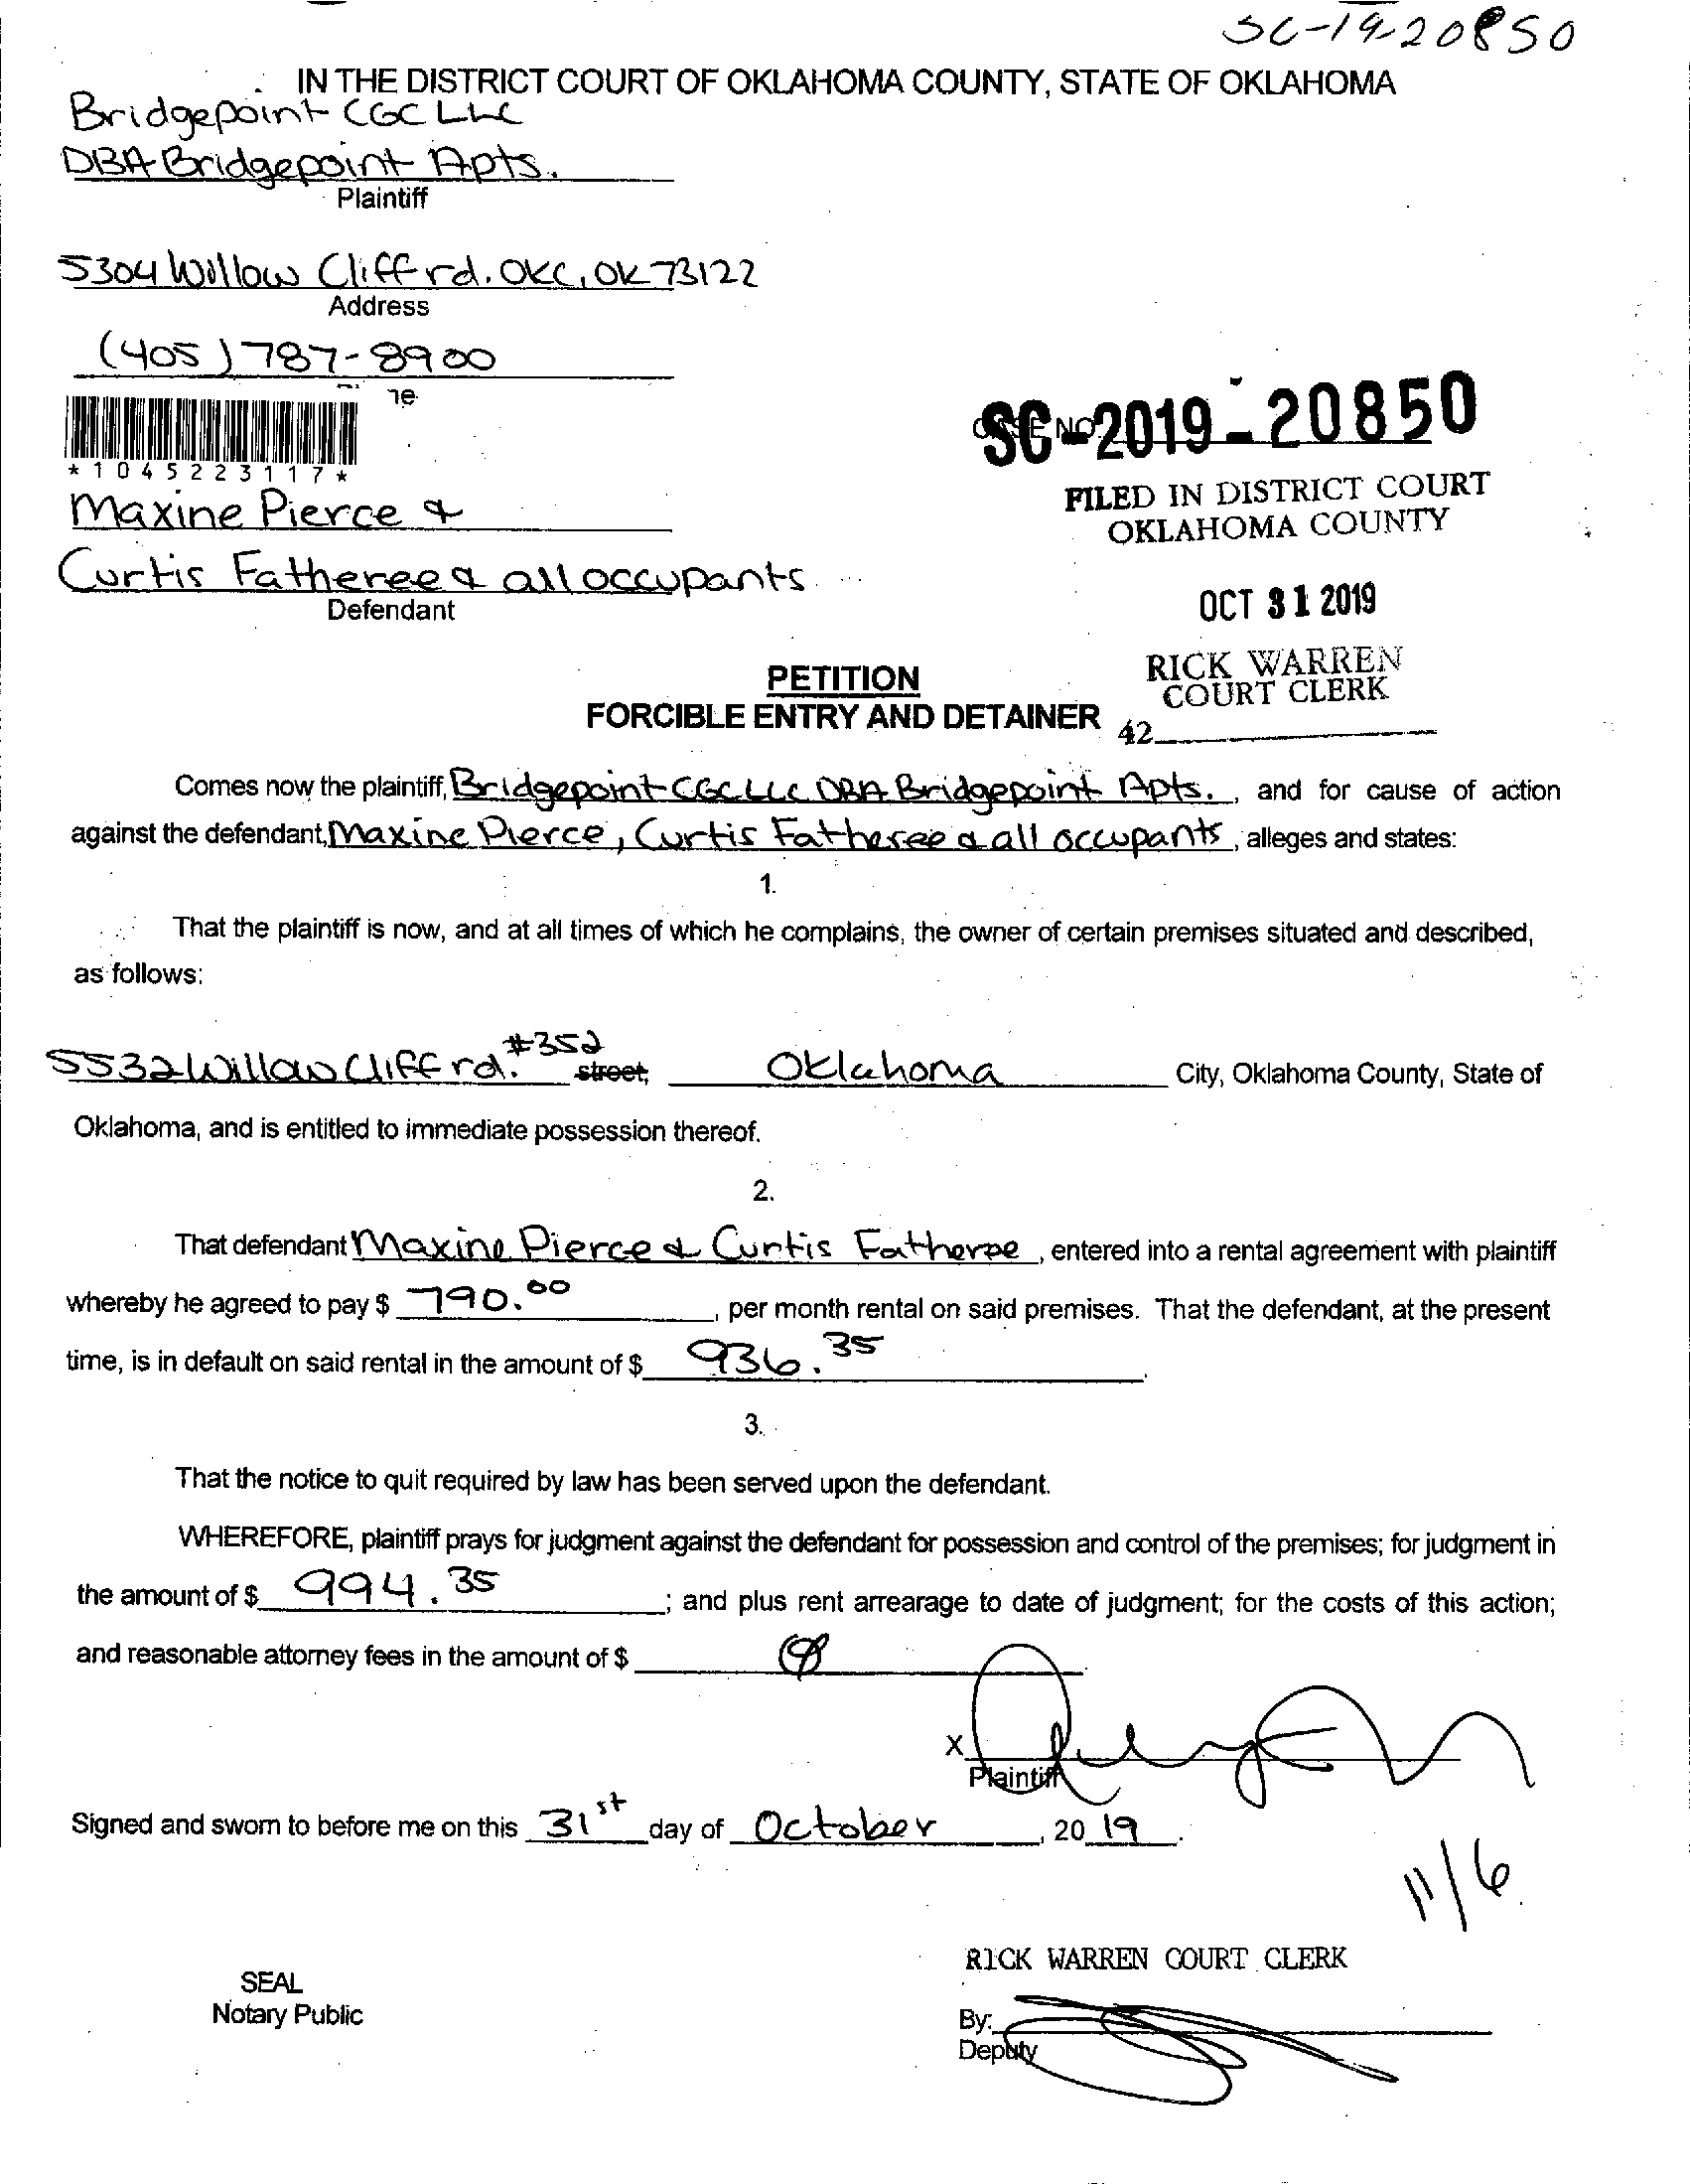 SC-19-20850
IN THE DISTRICT COURT OF OKLAHOMA COUNTY, STATE OF OKLAHOMA
Bridgepoint CGC LLC
DBA Bridgepoint Apts.
Plaintiff
5304 Willow Cliff rd. OKC, OK 73122
Address
(405) 787-8900
ne
*1045223117*
CASE NO.
SC-2019-20850
FILED IN DISTRICT COURT
OKLAHOMA COUNTY
Maxine Pierce &
Curtis Fatheree & all occupants
Defendant
OCT 31 2019
RICK WARREN
COURT CLERK
42
PETITION
FORCIBLE ENTRY AND DETAINER
Comes now the plaintiff, Bridgepoint CGC LLC DBA Bridgepoint Apts. , and for cause of action
against the defendant, Maxine Pierce, Curtis Fatheree & all occupants , alleges and states:
1.
That the plaintiff is now, and at all times of which he complains, the owner of certain premises situated and described,
as follows:
5532 Willow Cliff rd. #352 street, Oklahoma City, Oklahoma County, State of
Oklahoma, and is entitled to immediate possession thereof.
2.
That defendant Maxine Pierce & Curtis Fatheree , entered into a rental agreement with plaintiff
whereby he agreed to pay $ 790.00 , per month rental on said premises. That the defendant, at the present
time, is in default on said rental in the amount of $ 936.35 .
3.
That the notice to quit required by law has been served upon the defendant.
WHEREFORE, plaintiff prays for judgment against the defendant for possession and control of the premises; for judgment in
the amount of $ 994.35 ; and plus rent arrearage to date of judgment; for the costs of this action;
and reasonable attorney fees in the amount of $
X
Plaintiff
Signed and sworn to before me on this 31st day of October , 20 19 .
11/6
RICK WARREN COURT CLERK
SEAL
Notary Public
By:
Deputy